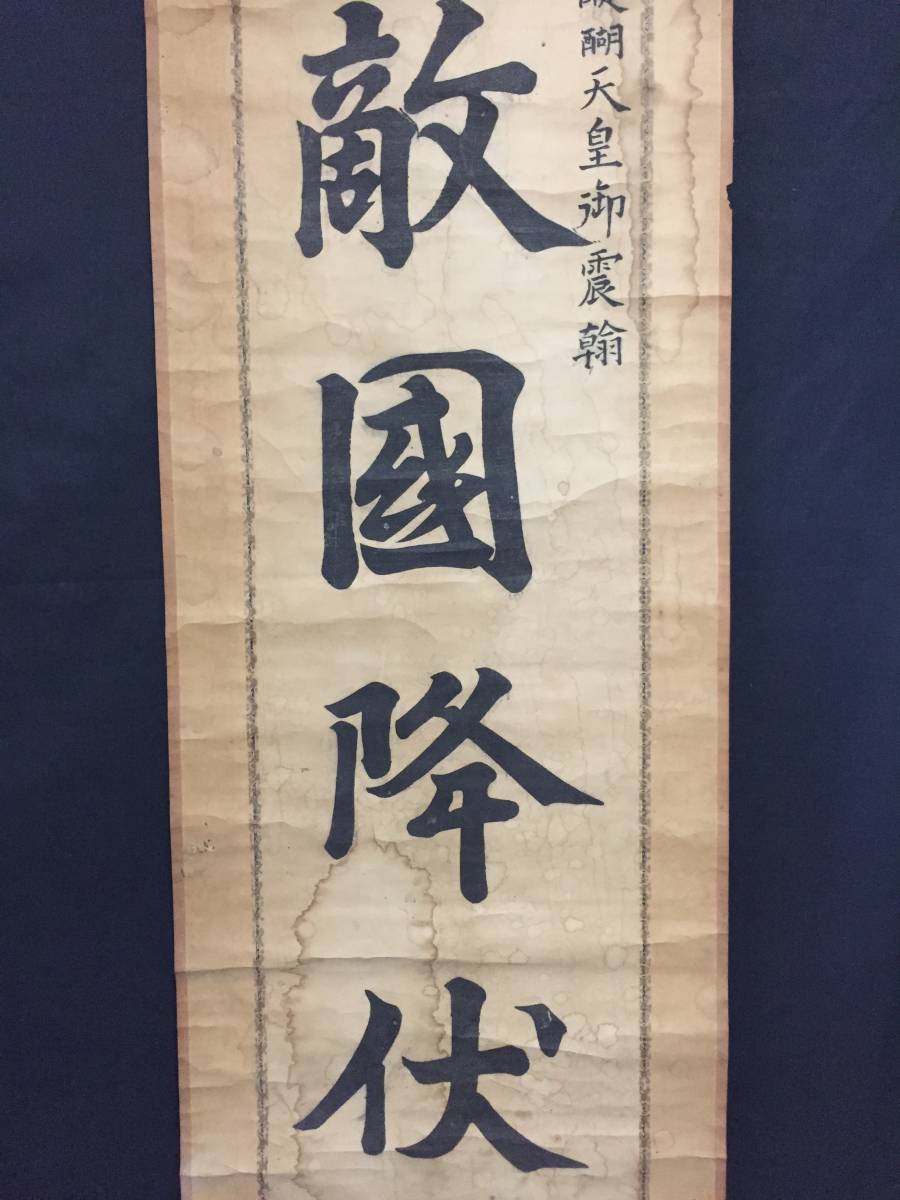 醍醐天皇御震翰
敵國降伏